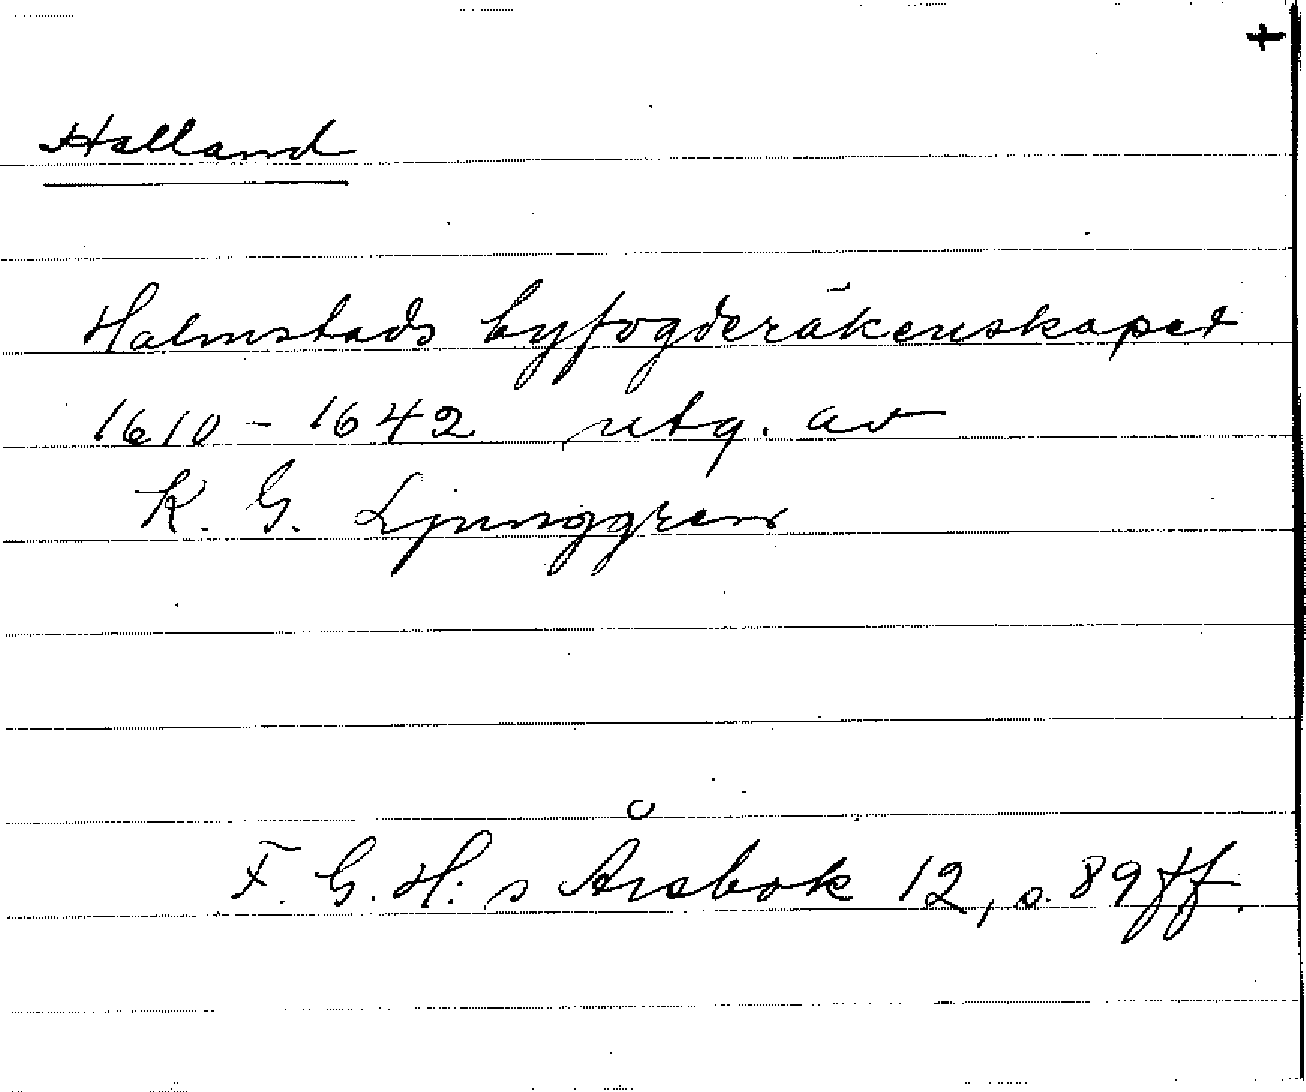 +
Halland
Halmstads byfogderäkenskapet
1610 - 1642 utg. av
K. G. Ljunggren
F. G. H:s Årsbok 12, s. 89 ff.